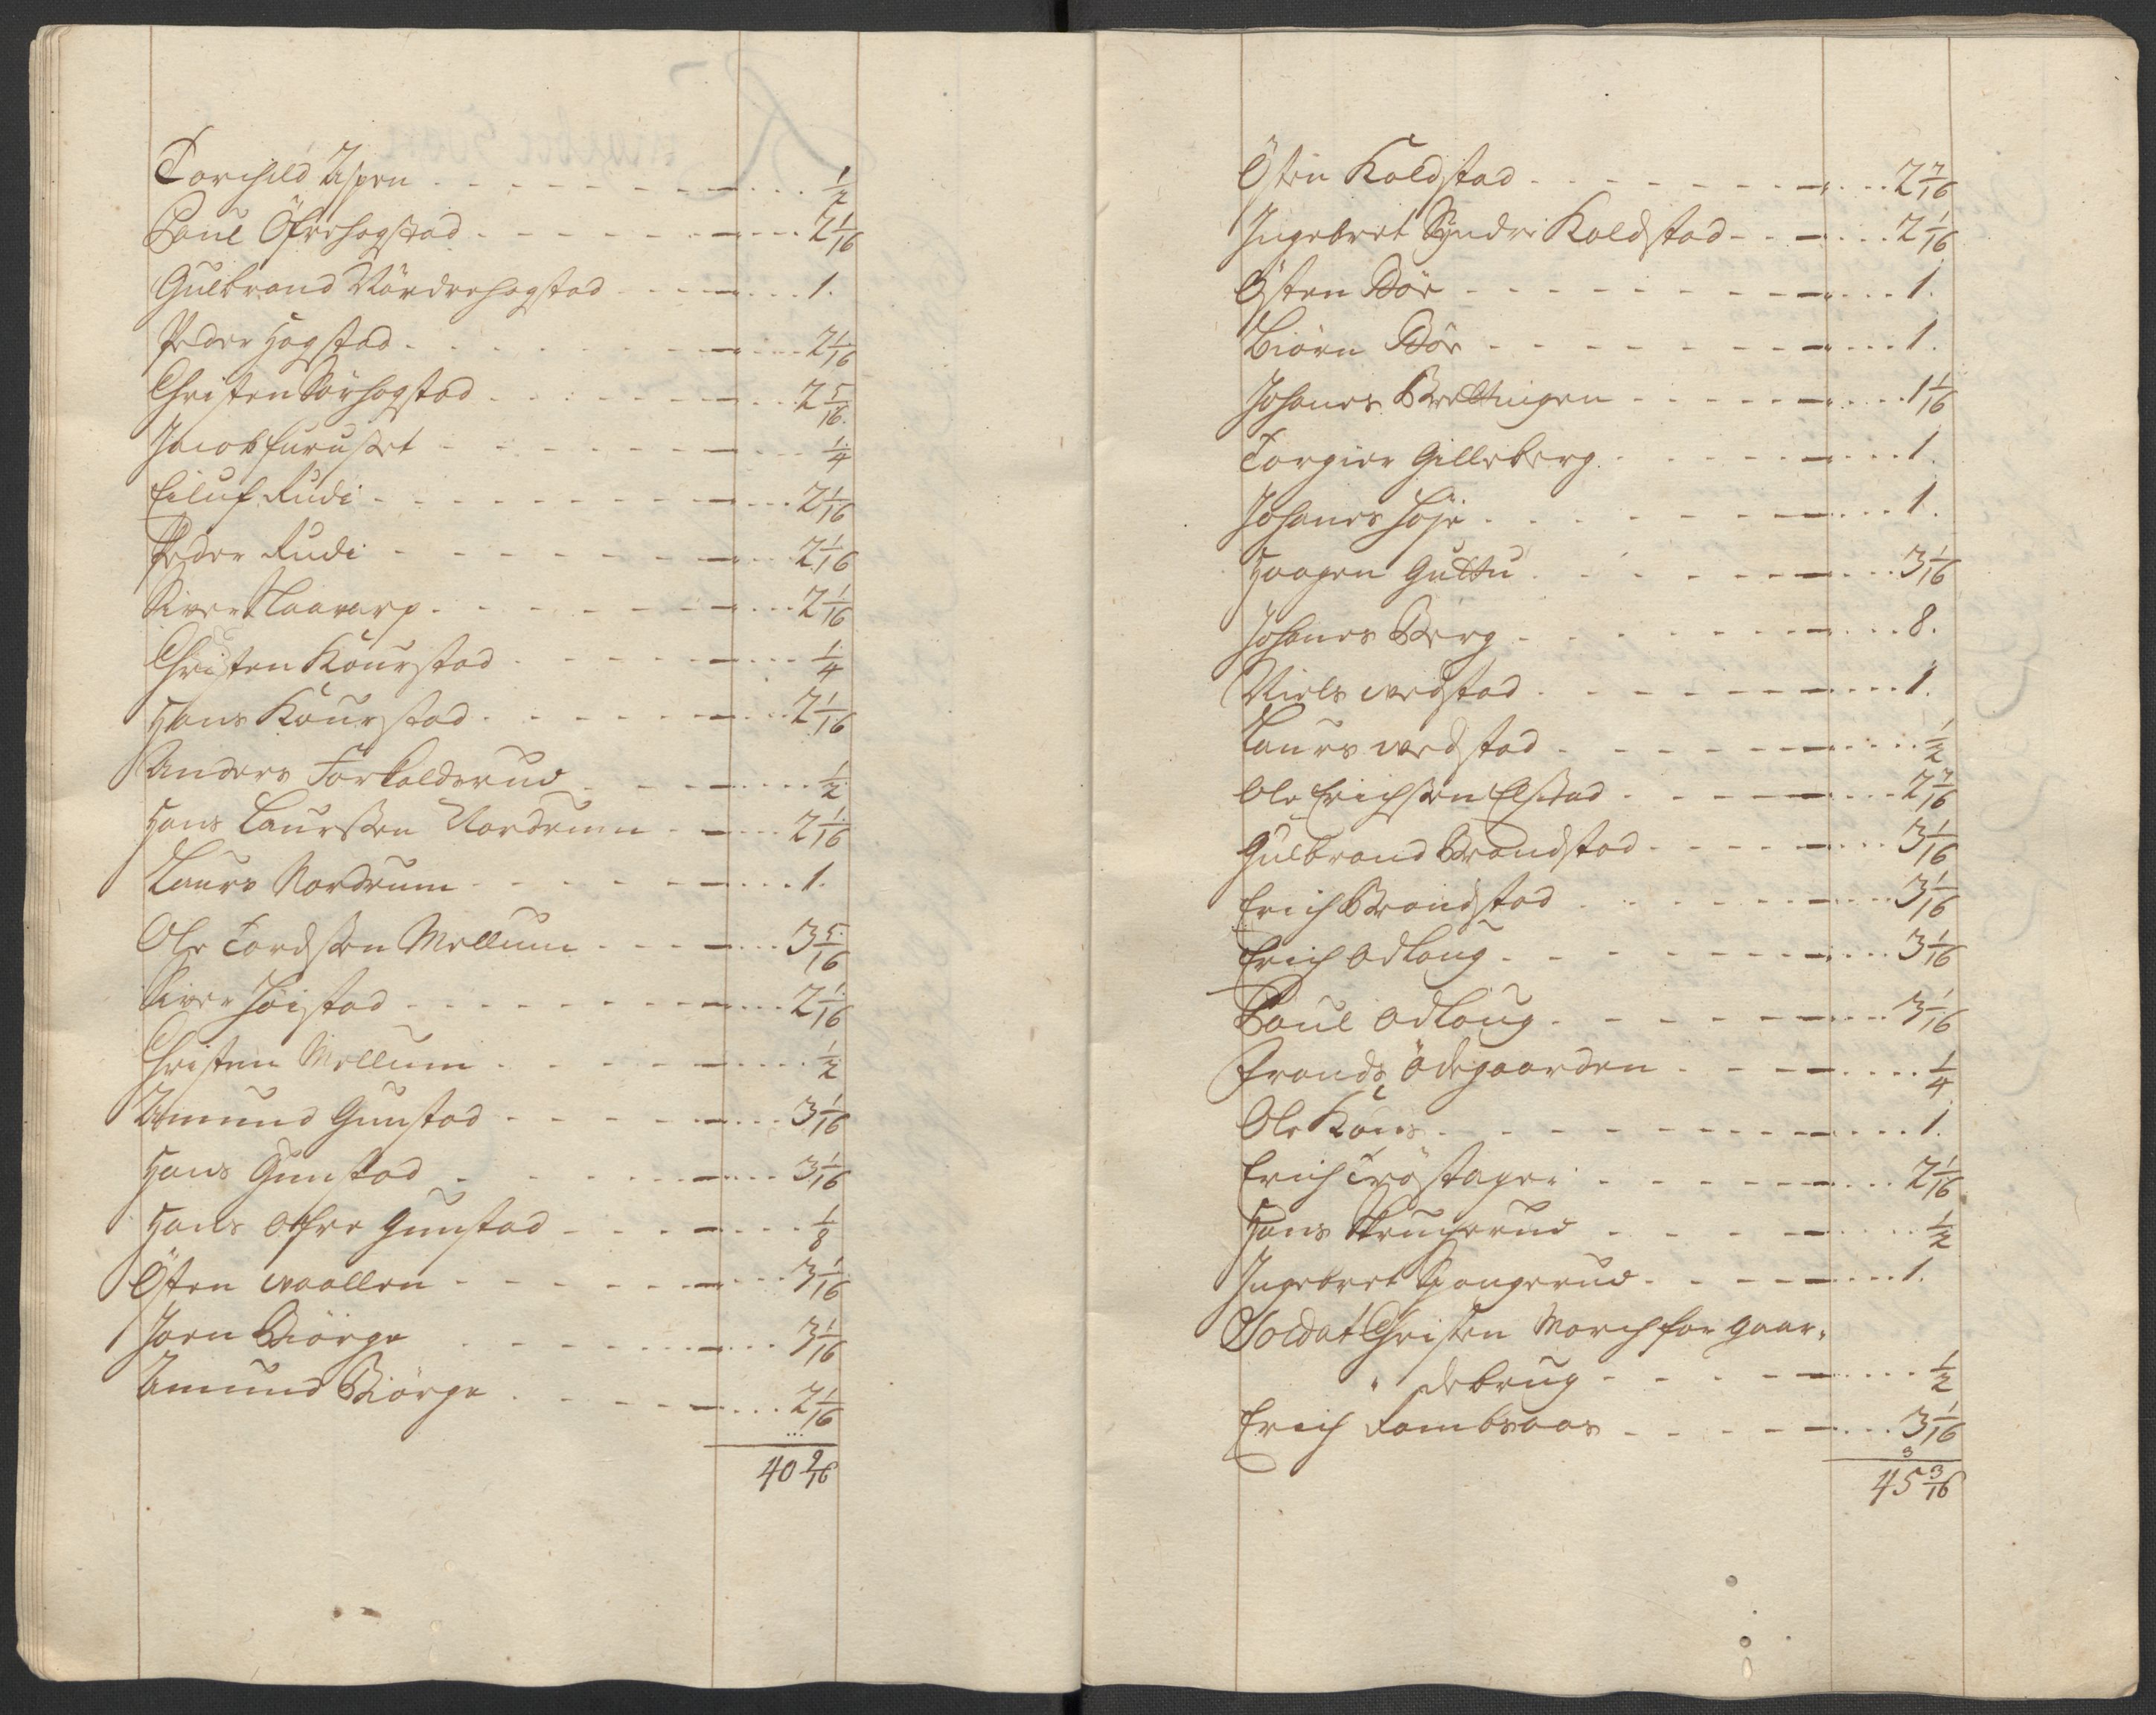 Torchild Aspen - - - - - - - - - . . . 1/2
Poul Öfrehogstad - - - - - - - - . . . 2 1/16
Gulbrand Nördrehogstad - - - - . . . 1.
Peder Hogstad - - - - - - - - . . . 2 1/16
Christen Sörhogstad - - - - - - . . . 2 5/16.
Jacob furuset - - - - - - - . . . 1/4
Eiluf Rudi - - - - - - - - . . . 2 1/16
Peder Rudi - - - - - - - - . . . 2 1/16
Siver Klaavarp - - - - - - - . . . 2 1/16
Christen Kourstad - - - - - - . . . 1/4
Hans Kourstad - - - - - - - . . . 2 1/16
Anders Torkaldsrud - - - - . . . . 1/2
Hans Laurssen Nordrum - - . . . 2 1/16
Laurs Nordrum - - - - - - . . . 1.
Ole Tordssen Mellum - - - - . . . 3 5/16
Siver Höistad - - - - - - - . . . 2 1/16
Christen Mellum - - - - - - . . . . 1/2
Amund Gunstad - - - - - - . . . 3 1/16
Hans Gunstad - - - - - - . . . 3 1/16
Hans öfre Gunstad - - - - . . . . 1/8
Östen Waallen - - - - - - . . . 3 1/16
Joen Biörge - - - - - - . . . 3 1/16
Amund Biörge - - - - - . . . 2 1/16
40 9/16
Östin Koldstad - - - - - - - . . . 2 7/16
Ingebret Syndre Koldstad - - - . . . 2 1/16
Östen Böe - - - - - - - - . . . 1.
Biörn Böe - - - - - - - . . . 1.
Johanes Brettingen - - - - - . . . 1 1/16
Torgier Gilleberg - - - - - . . . 1.
Johanes Höje - - - - - - - . . . 1.
Haagen Guttu - - - - - - . . . 3 1/16
Johanes Berg - - - - - - - . . . 8.
Niels wedstad - - - - - - - . . . 1.
Laurs wedstad - - - - - - . . . . 1/2
Ole Erichssen Elstad - - - - - . . . 2 7/16
Gulbrand Brandstad - - - - - . . . 3 1/16
Erich Brandstad - - - - - - . . . 3 1/16
Erich Odloug - - - - - - - . . . 3 1/16
Poul Odloug - - - - - - - . . . 3 1/16
Frands Ödegaarden - - - - . . . . 1/4
Ole Kous - - - - - - - - . . . 1.
Erich Tröstager - - - - - - . . . 2 1/16
Hans Skrugerud - - - - - . . . 1/2
Ingebret Spangerud - - - - - . . . 1.
Soldat Christen Morch for gaar-
" debrug - - - - - . . . . 1/2
Erich Lombsaas - - - - - . . . 3 1/16
45 3/16